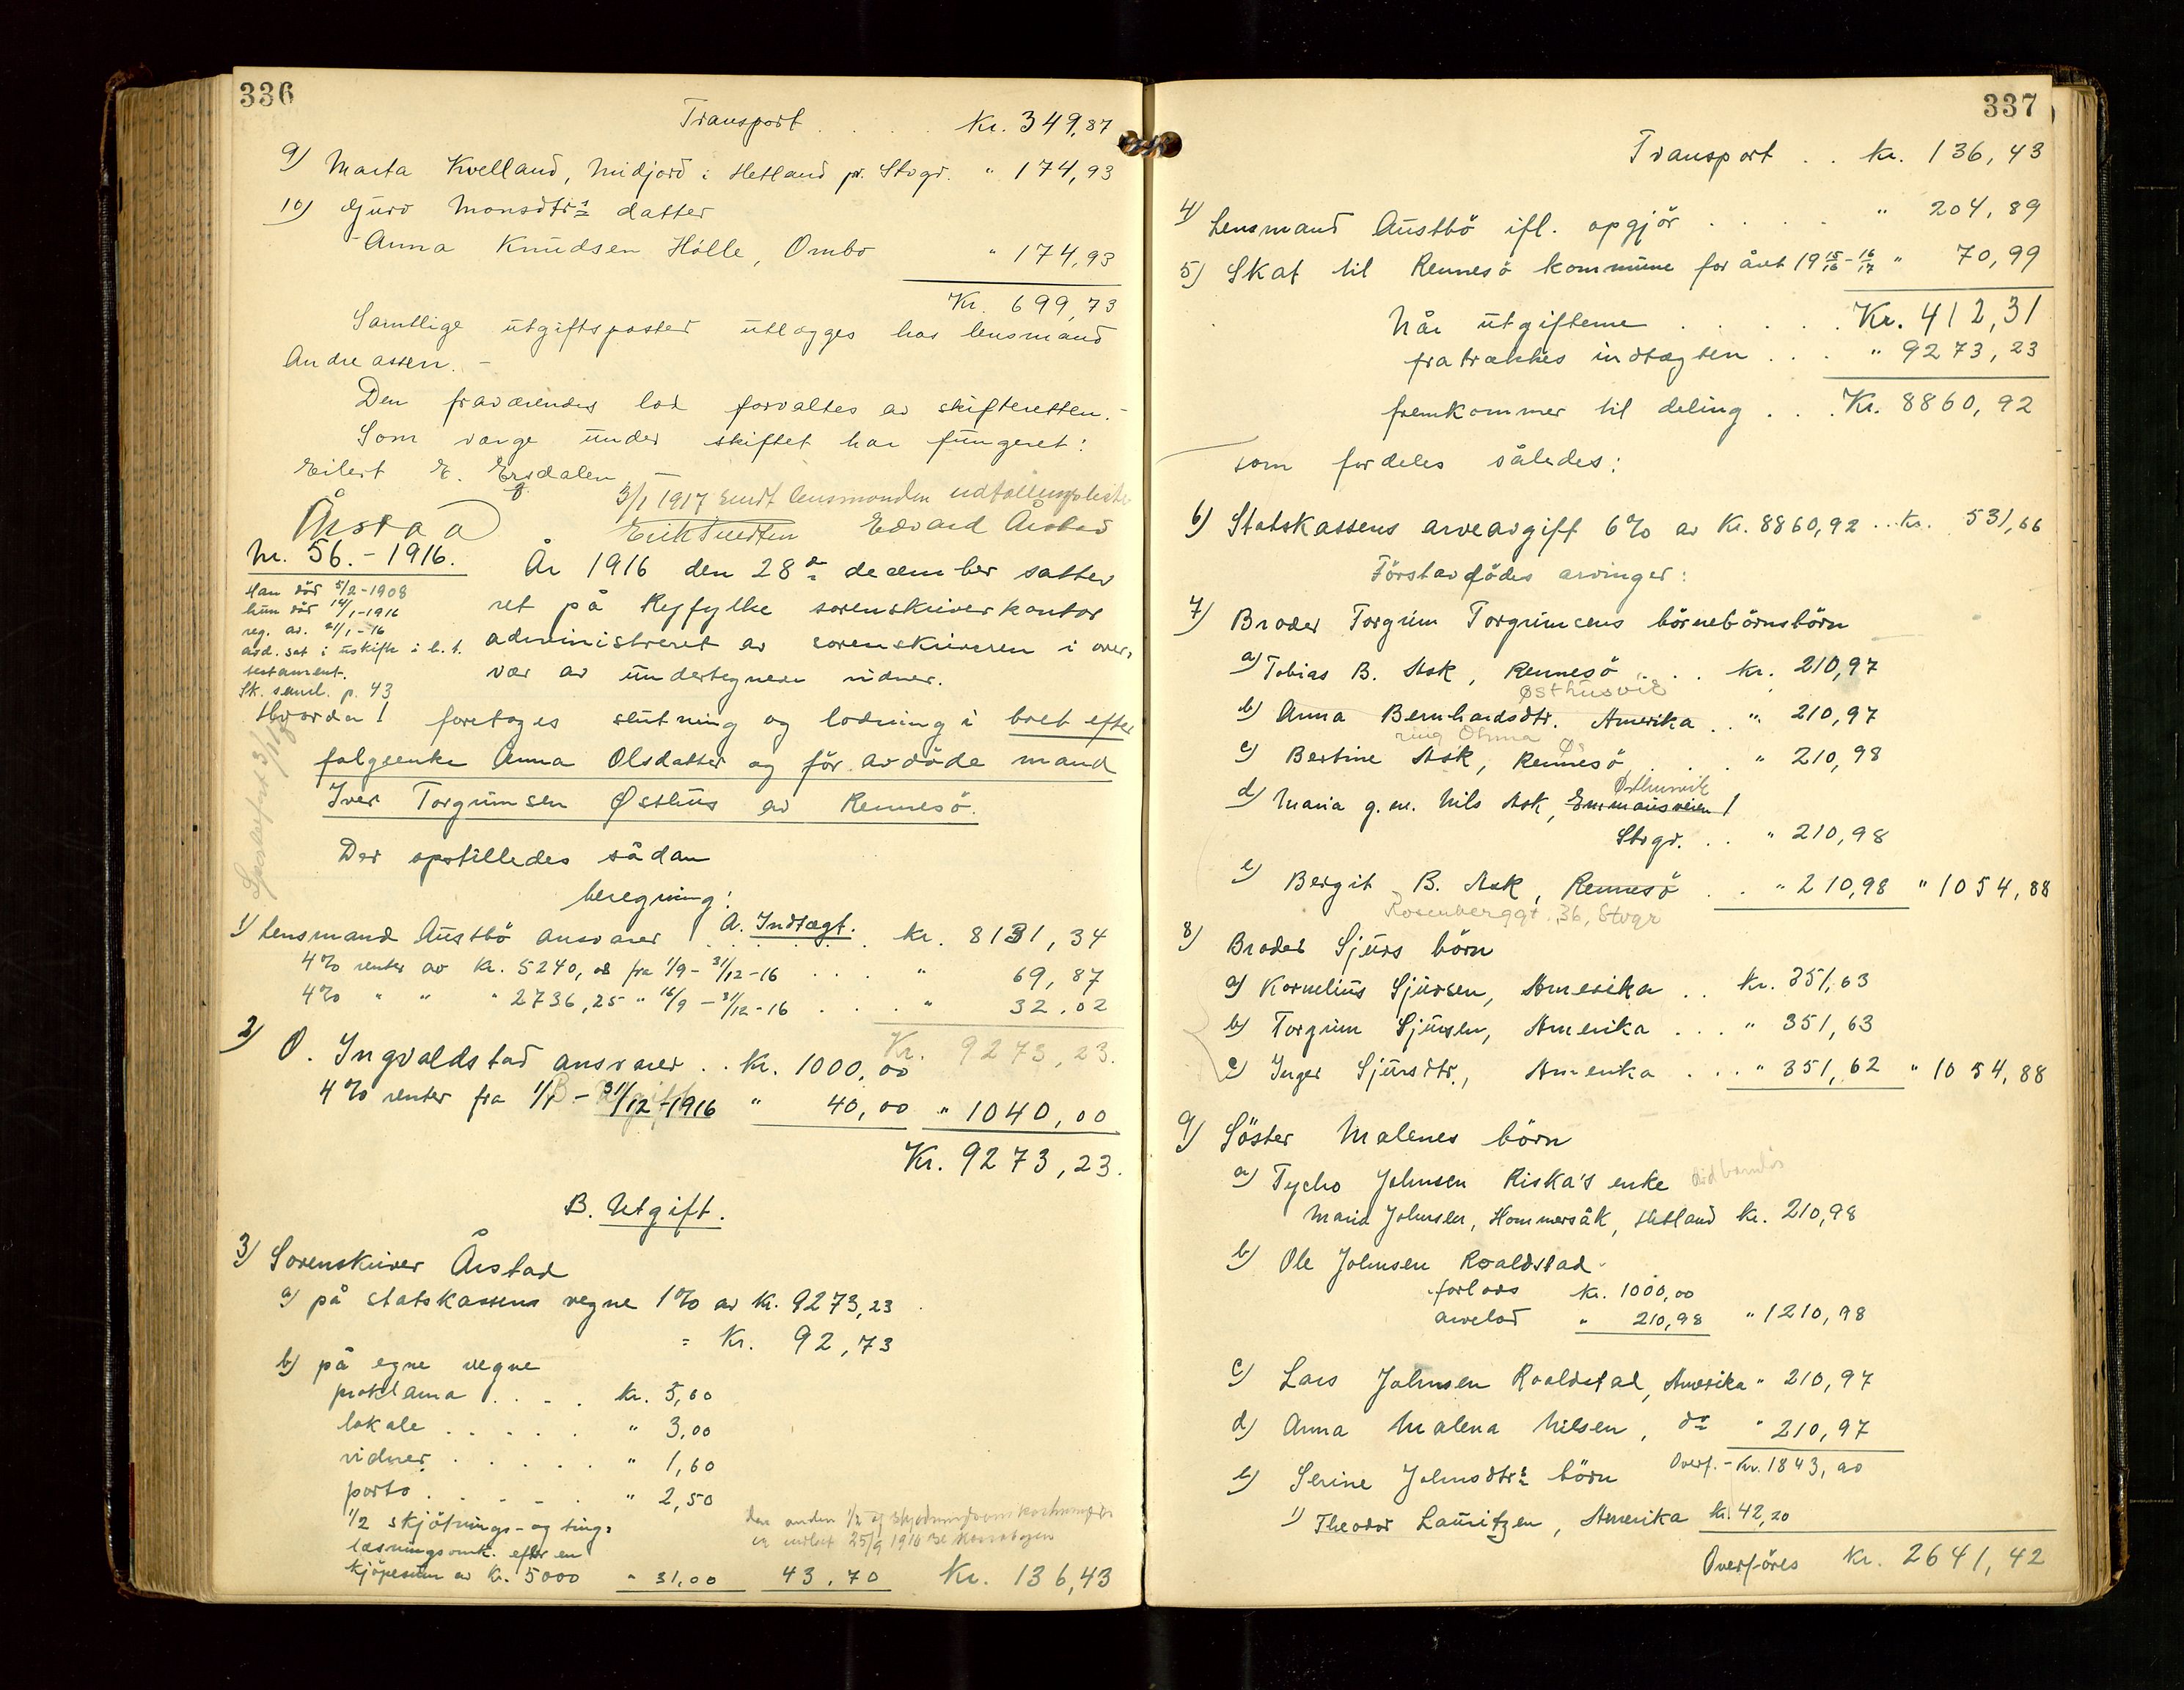 336
Transport . . . . Kr. 349,87
9) Marta Kvelland, Midjord i Hetland pr. Stvgr. " 174,93
10) Guro Monsdtrs datter
Anna Knudsen Hölle, Ombo " 174,93
Kr. 699,73
Samtlige utgiftsposter utlægges hos lensmand
Andreassen. -
Den fraværendes lod forvaltes av skifteretten. -
Som værge under skiftet har fungeret:
Eilert E. Ersdalen
3/1 1917 sendt lensmanden
Årstad
Edvard Årstad
Nr. 56. - 1916.
Han död 5/2 - 1908
hun död 14/1 - 1916
reg. av. 21/1 - 16
avd. sat i uskifte i h. t.
testament.
Sk. saml. p. 43
År 1916 den 28de december sattes
ret på Ryfylke sorenskriverkontor
administreret av sorenskriveren i over-
vær av undertegnede vidner.
Hvorda! foretoges slutning og lodning i boet efter
følgeenke Anna Olsdatter og för avdöde mand
Iver Torgrimsen Østhus av Rennesö.
Der opstilledes sådan
beregning:
A. Indtægt.
1) Lensmand Austbö ansvarer . . . . . Kr. 8131,34
4% renter av Kr. 5240,08 fra 1/9 - 31/12 - 16 . . . " 69,87
4% " " " 2736,25 " 16/9 - 31/12 - 16 . . . " 32,02
Kr. 9273,23.
2) O. Ingvaldstad ansvarer . . Kr. 1000,00
4% renter fra 1/1 - 31/12 - 1916 " 40,00 " 1040,00
Kr. 9273,23.
B. Utgift.
3) Sorenskriver Årstad
a) på statskassens vegne 1% av Kr. 9273,23
= Kr. 92,73
b) på egne vegne
proklama . . . . Kr. 5,60
lokale . . . . . " 3,00
vidner . . . . . " 1,60
porto . . . . . " 2,50
1/2 skjötnings- og ting-
læsningsomk. efter en
kjöpesum av Kr. 5000 " 31,00 43,70 Kr. 136,43
den anden 1/2 af
er 25/9 1916
337
Transport . . Kr. 136,43
4) Lensmand Austbö ifl. opgjör . . . . . " 204,89
5) Skat til Rennesö kommune for året 19 15/16 - 16/17 " 70,99
Når utgifterne . . . . . Kr. 412,31
fratrækkes indtægten . . . " 9273,23
fremkommer til deling . . . Kr. 8860,92
som fordeles således:
6) Statskassens arveavgift 6% av Kr. 8860,92 . . Kr. 531,66
Förstavdödes arvinger:
7) Broder Torgrim Torgrimsens börnebörnsbörn
a) Tobias B. Ask, Rennesö . . . Kr. 210,97
Østhusvik
b) Anna Bernhardsdtr. Amerika . . " 210,97
c) Bertine Ask, Rennesö . . . " 210,98
Østhusvik
d) Maria g. m. Nils Ask, Emmausveien!
Stvgr. . . " 210,98
e) Bergit B. Ask, Rennesö . . " 210,98 " 1054,88
Rosenberggt. 36, Stvgr
8) Broder Sjurs börn
a) Kornelius Sjursen, Amerika . . Kr. 351,63
b) Torgrim Sjursen, Amerika . . . " 351,63
c) Inger Sjursdtr., Amerika . . . " 351,62 " 1054,88
9) Söster Malenes börn
a) Tycho Johnsen Riska's enke
Maria Johnsen, Hommersåk, Hetland Kr. 210,98
b) Ole Johnsen Roaldstad
forlods Kr. 1000,00
arvelod " 210,98 " 1210,98
c) Lars Johnsen Roaldstad, Amerika " 210,97
d) Anna Malena Nilsen, do " 210,97
Overf. - Kr. 1843,90
e) Serine Johnsdtrs börn
1) Theodor Lauritzen, Amerika Kr. 42,20
Overföres Kr. 2641,42